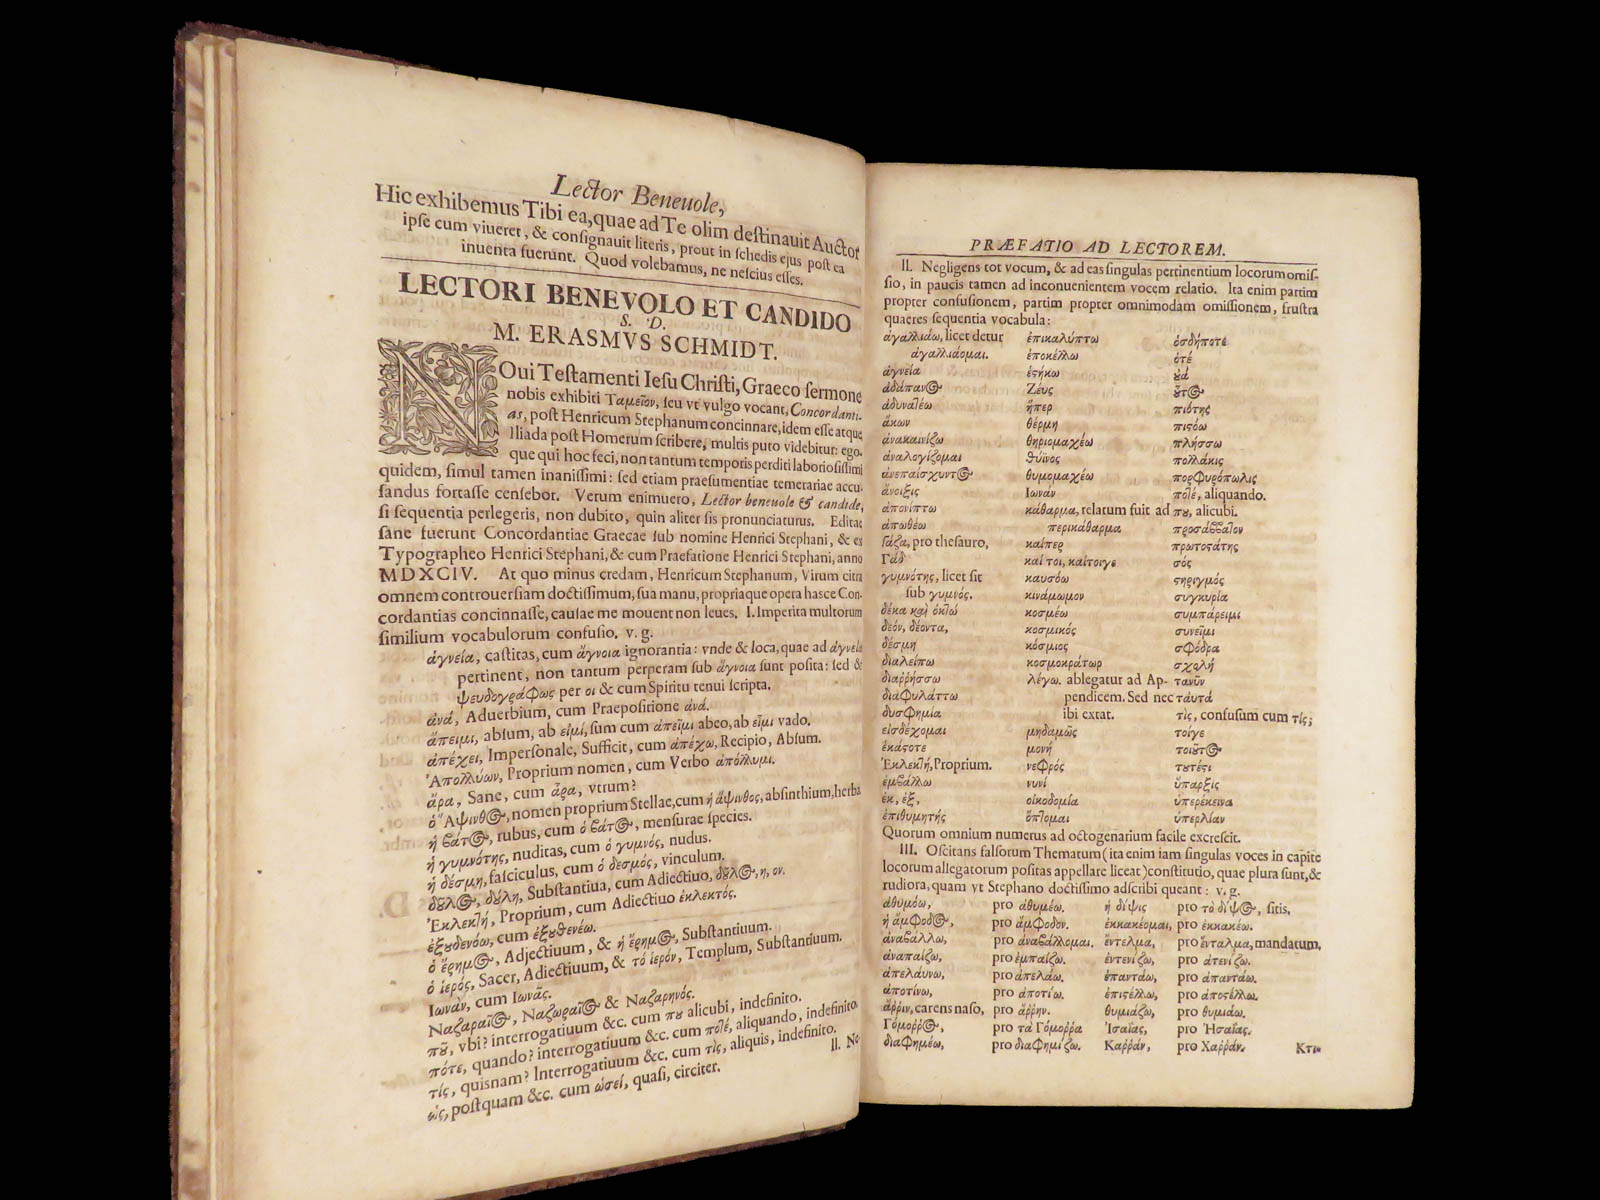 Lector Beneuole,
Hic exhibemus Tibi ea, quae ad Te olim destinauit Auctor
ipse cum viueret, & consignauit literis, prout in schedis ejus post ea
inuenta fuerunt. Quod volebamus, ne nescius esses.
LECTORI BENEVOLO ET CANDIDO
S. D.
M. ERASMVS SCHMIDT.
NOui Testamenti Iesu Christi, Graeco sermone
nobis exhibiti Ταμεῖον, seu vt vulgo vocant, Concordanti-
as, post Henricum Stephanum concinnare, idem esse atque
Iliada post Homerum scribere, multis puto videbitur: ego-
que qui hoc feci, non tantum temporis perditi laboriosissimi
quidem, simul tamen inanissimi: sed etiam praesumentiae temerariae accu-
sandus fortasse censebor. Verum enimuero, Lector beneuole & candide,
si sequentia perlegeris, non dubito, quin aliter sis pronunciaturus. Editae
sane fuerunt Concordantiae Graecae sub nomine Henrici Stephani, & ex
Typographeo Henrici Stephani, & cum Praefatione Henrici Stephani, anno
MDXCIV. At quo minus credam, Henricum Stephanum, Virum citra
omnem controuersiam doctissimum, sua manu, propriaque opera hasce Con-
cordantias concinnasse, causae me mouent non leues. I. Imperita multorum
similium vocabulorum confusio. v. g.
ἁγνεία, castitas, cum ἄγνοια ignorantia: vnde & loca, quae ad ἁγνεία
pertinent, non tantum perperam sub ἄγνοια sunt posita: sed &
ψευδογράφως per οι & cum Spiritu tenui scripta.
ἀνά, Aduerbium, cum Praepositione ἀνά.
ἄπειμι, absum, ab εἰμί, sum cum ἀπεῖμι abeo, ab εἶμι vado.
ἀπέχει, Impersonale, Sufficit, cum ἀπέχω, Recipio, Absum.
Ἀπολλύων, Proprium nomen, cum Verbo ἀπόλλυμι.
ἄρα, Sane, cum ἆρα, vtrum?
ὁ Ἄψινθος, nomen proprium Stellae, cum ἡ ἄψινθος, absinthium, herba
ἡ βάτος, rubus, cum ὁ βάτος, mensurae species.
ἡ γυμνότης, nuditas, cum ὁ γυμνός, nudus.
ἡ δέσμη, fasciculus, cum ὁ δεσμός, vinculum.
δοῦλος, δούλη, Substantiua, cum Adiectiuo, δοῦλος, η, ον.
Ἐκλεκτή, Proprium, cum Adiectiuo ἐκλεκτός.
ἐξουδενόω, cum ἐξουθενέω.
ὁ ἔρημος, Adjectiuum, & ἡ ἔρημος, Substantiuum.
ὁ ἱερός, Sacer, Adiectiuum, & τό ἱερόν, Templum, Substantiuum.
Ιωνὰν, cum Ιωνᾶς.
Ναζαραῖος, Ναζωραῖος & Ναζαρηνός.
ποῦ, vbi? interrogatiuum &c. cum που alicubi, indefinito.
πότε, quando? interrogatiuum &c. cum ποτέ, aliquando, indefinito.
τίς, quisnam? Interrogatiuum &c. cum τὶς, aliquis, indefinito.
ὡς, postquam &c. cum ὡσεί, quasi, circiter.
II. Ne-
PRÆFATIO AD LECTOREM.
II. Negligens tot vocum, & ad eas singulas pertinentium locorum omis-
sio, in paucis tamen ad inconuenientem vocem relatio. Ita enim partim
propter confusionem, partim propter omnimodam omissionem, frustra
quaeres sequentia vocabula:
ἀγαλλιάω, licet detur ἐπικαλύπτω ὁσδήποτέ
ἀγαλλιάομαι. ἐποκέλλω ὁτέ
ἁγνεία ἐσήκω οὐά
ἀδάπανος Ζεύς οὗτος
ἀδυνατέω ἤπερ πιότης
ἄκων θέρμη πιστόω
ἀνακαινίζω θηριομαχέω πλήσσω
ἀναλογίζομαι θύϊνος πολλάκις
ἀνεπαίσχυντος θυμομαχέω πορφυρόπωλις
ἄνοιξις Ιωνάν ποτέ, aliquando.
ἀπονίπτω κάθαρμα, relatum fuit ad που, alicubi.
ἀπωθέω περικάθαρμα προσάββατον
γάζα, pro thesauro, καίπερ πρωτοστάτης
Γάδ καί τοι, καίτοιγε σός
γυμνότης, licet sit καυσόω στηριγμός
sub γυμνός. κινάμωμον συγκυρία
δέκα καὶ ὀκτώ κοσμέω συμπάρειμι
δεόν, δέοντα, κοσμικός συνεῖμι
δέσμη κόσμιος σφόδρα
διαλείπω κοσμοκράτωρ σχολή
διαῤῥήσσω λέγω. ablegatur ad Ap- τανῦν
διαφυλάττω pendicem. Sed nec ταὐτά
δυσφημία ibi extat. τὶς, confusum cum τίς;
εἰσδέχομαι μηδαμῶς τοίγε
ἑκάστοτε μονή τοιοῦτος
Ἐκλεκτή, Proprium. νεφρός τουτέστι
ἐμβάλλω νυνί ὕπαρξις
ἐκ, ἐξ, οἰκοδομία ὑπερέκεινα
ἐπιθυμητής ὄπτομαι ὑπερλίαν
Quorum omnium numerus ad octogenarium facile excrescit.
III. Oscitans falsorum Thematum (ita enim iam singulas voces in capite
locorum allegatorum positas appellare liceat) constitutio, quae plura sunt, &
rudiora, quam vt Stephano doctissimo adscribi queant: v. g.
ἀθυμόω, pro ἀθυμέω. ἡ δίψις pro τὸ δίψος, sitis.
ἡ ἄμφοδος, pro ἄμφοδον. ἐκκακέομαι, pro ἐκκακέω.
ἀναβάλλω, pro ἀναβάλλομαι. ἔντελμα, pro ἔνταλμα, mandatum.
ἀναπαίζω, pro ἐμπαίζω. ἐντενίζω, pro ἀτενίζω.
ἀπελαύνω, pro ἀπελάω. ἐπαντάω, pro ἀπαντάω.
ἀποτίνω, pro ἀποτίω. ἐπιστέλλω, pro ἀποστέλλω.
ἄῤῥιν, carens naso, pro ἄῤῥην. θυμιάζω, pro θυμιάω.
Γόμοῤῥος, pro τὰ Γόμοῤῥα Ἰσαΐας, pro Ἡσαΐας.
διαφημέω, pro διαφημίζω. Καῤῥάν, pro Χαῤῥάν.
Κτε-